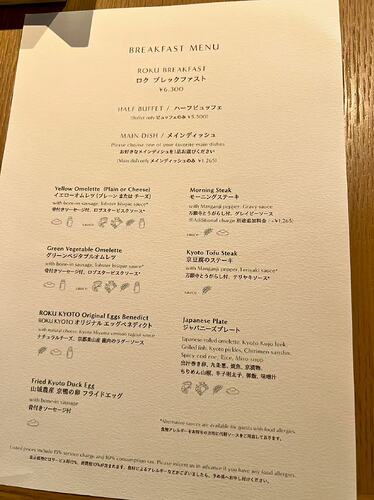 BREAKFAST MENU
ROKU BREAKFAST
ロク ブレックファスト
¥6,300
HALF BUFFET / ハーフビュッフェ
(Buffet only ビュッフェのみ ¥5,500)
MAIN DISH / メインディッシュ
Please choose one of your favorite main dishes
お好きなメインディッシュを1品お選びください
(Main dish only メインディッシュのみ ¥1,265)
Yellow Omelette (Plain or Cheese)
イエローオムレツ(プレーン または チーズ)
with bone-in sausage, lobster bisque sauce*
骨付きソーセージ付、ロブスタービスクソース*
sauce
Green Vegetable Omelette
グリーンベジタブルオムレツ
with bone-in sausage, lobster bisque sauce*
骨付きソーセージ付、ロブスタービスクソース*
sauce
ROKU KYOTO Original Eggs Benedict
ROKU KYOTO オリジナル エッグベネディクト
with natural cheese, Kyoto Miyama venison
ナチュラルチーズ、京都美山産 鹿肉のラグーソース
Fried Kyoto Duck Egg
山城農産 京鴨の卵 フライドエッグ
with bone-in sausage
骨付きソーセージ付
Morning Steak
モーニングステーキ
with Manganji pepper, Gravy sauce
万願寺とうがらし付、グレイビーソース
※Additional charge 別途追加料金 : +¥1,265
sauce
Kyoto Tofu Steak
京豆腐のステーキ
with Manganji pepper, Teriyaki sauce*
万願寺とうがらし付、テリヤキソース*
sauce
Japanese Plate
ジャパニーズプレート
Japanese rolled omelette, Kyoto Kujo leek
Grilled fish, Kyoto pickles, Chirimen sansho,
Spicy cod roe, Rice, Miso soup
出汁巻き卵、九条葱、焼魚、京漬物、
ちりめん山椒、辛子明太子、御飯、味噌汁
*Alternative sauces are available for guests with food allergies.
食物アレルギーをお持ちのお客様に代替ソースをご用意しております。
Listed prices include 15% service charge and 10% consumption tax. Please inform us in advance if you have any food allergies.